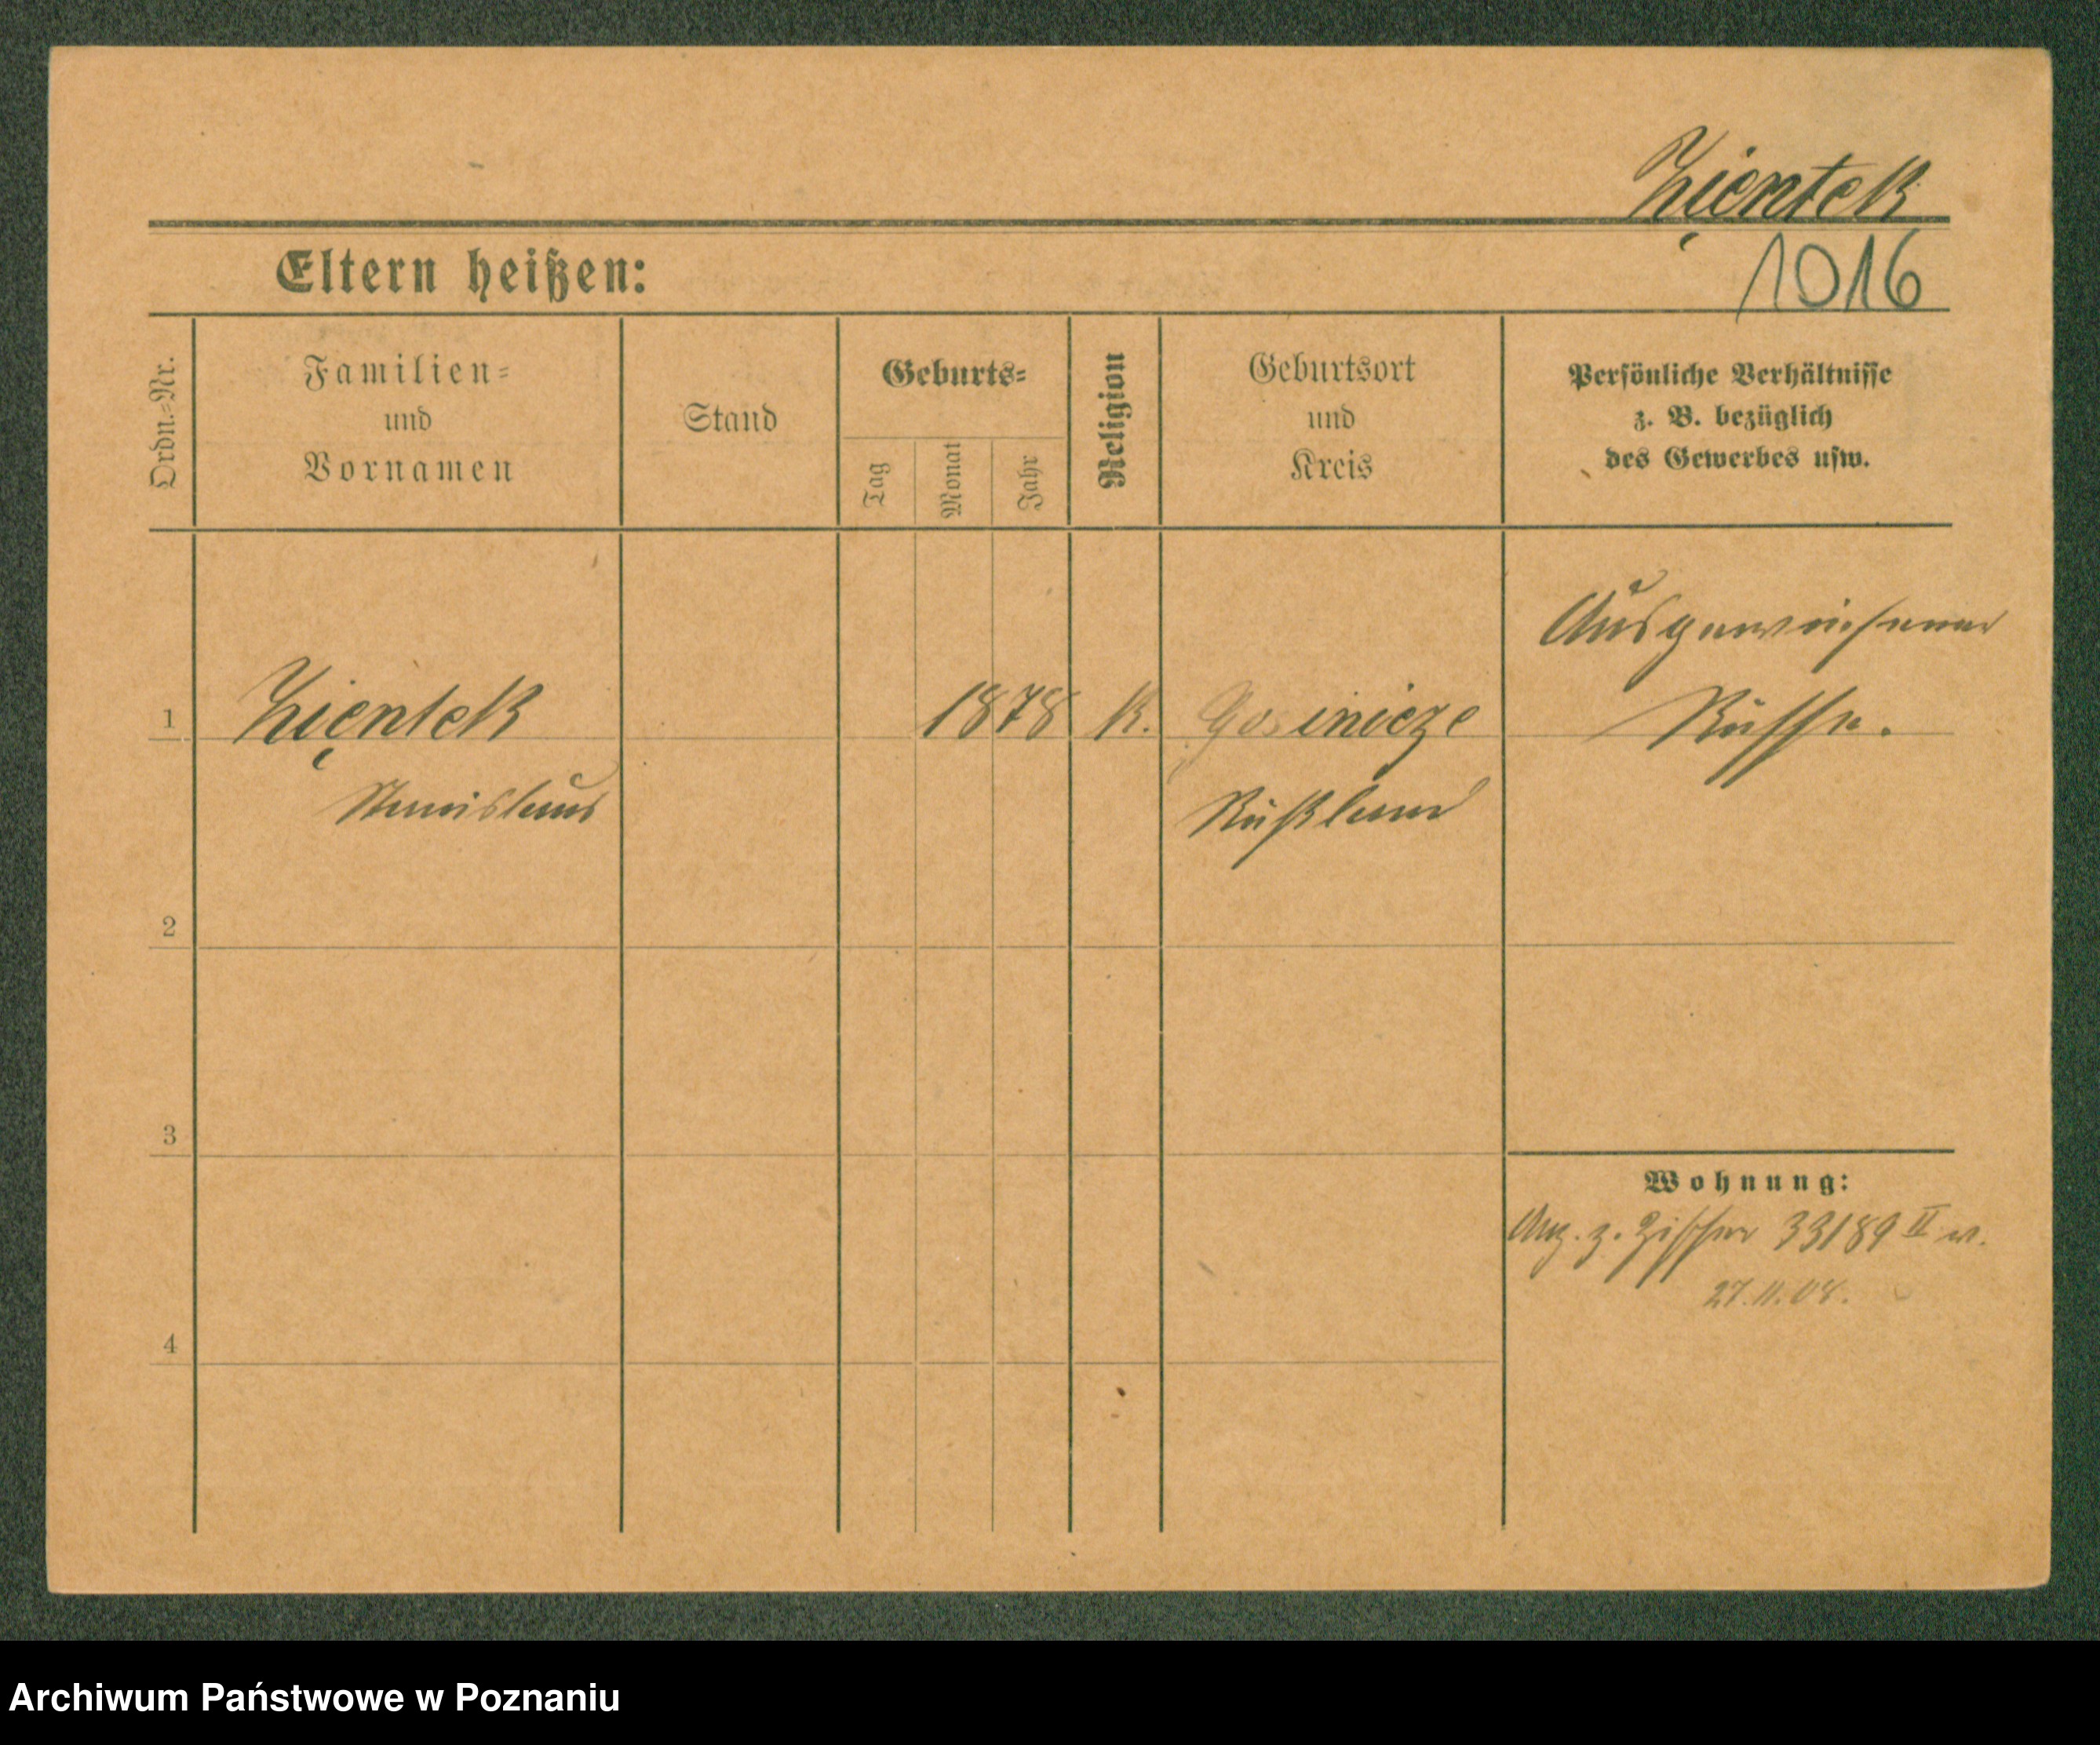 Zientek
Eltern heißen:
1016
Ordn.-Nr.
Familien-
und
Vornamen
Stand
Geburts-
Tag
Monat
Jahr
Religion
Geburtsort
und
Kreis
Persönliche Verhältnisse
z. B. bezüglich
des Gewerbes usw.
Ausgewiesener
1 Zientek 1878 K. Russe.
Stanislaus Rußland
2
3
Wohnung:
z. Ziffer 33189 II
27.11.08.
4
Archiwum Państwowe w Poznaniu